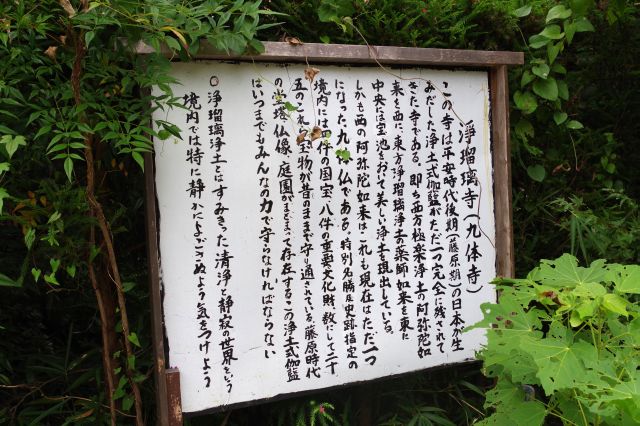 浄瑠璃寺(九体寺)
この寺は平安時代後期(藤原期)の日本が生
みだした浄土式伽藍がただ一つ完全に残されて
きた寺である。即ち西の極楽浄土の阿弥陀如
来を西に、東方浄瑠璃浄土の薬師如来を東に
中央には宝池をおいて美しい浄土を現出している。
しかも西の阿弥陀如来はこれも現在はただ一つ
になった九体仏である。特別名勝及史跡指定の
境内には 件の国宝、八件の重要文化財、数にして二十
五のこれ 宝物が昔のまま守り通されている。藤原時代
の堂塔、仏像、庭園がまとまって存在するこの浄土式伽藍
はいつまでもみんなの力で守らなければならない
○浄瑠璃浄土とはすみきった清浄と静寂の世界をいう
境内では特に静かによごさぬよう気をつけよう